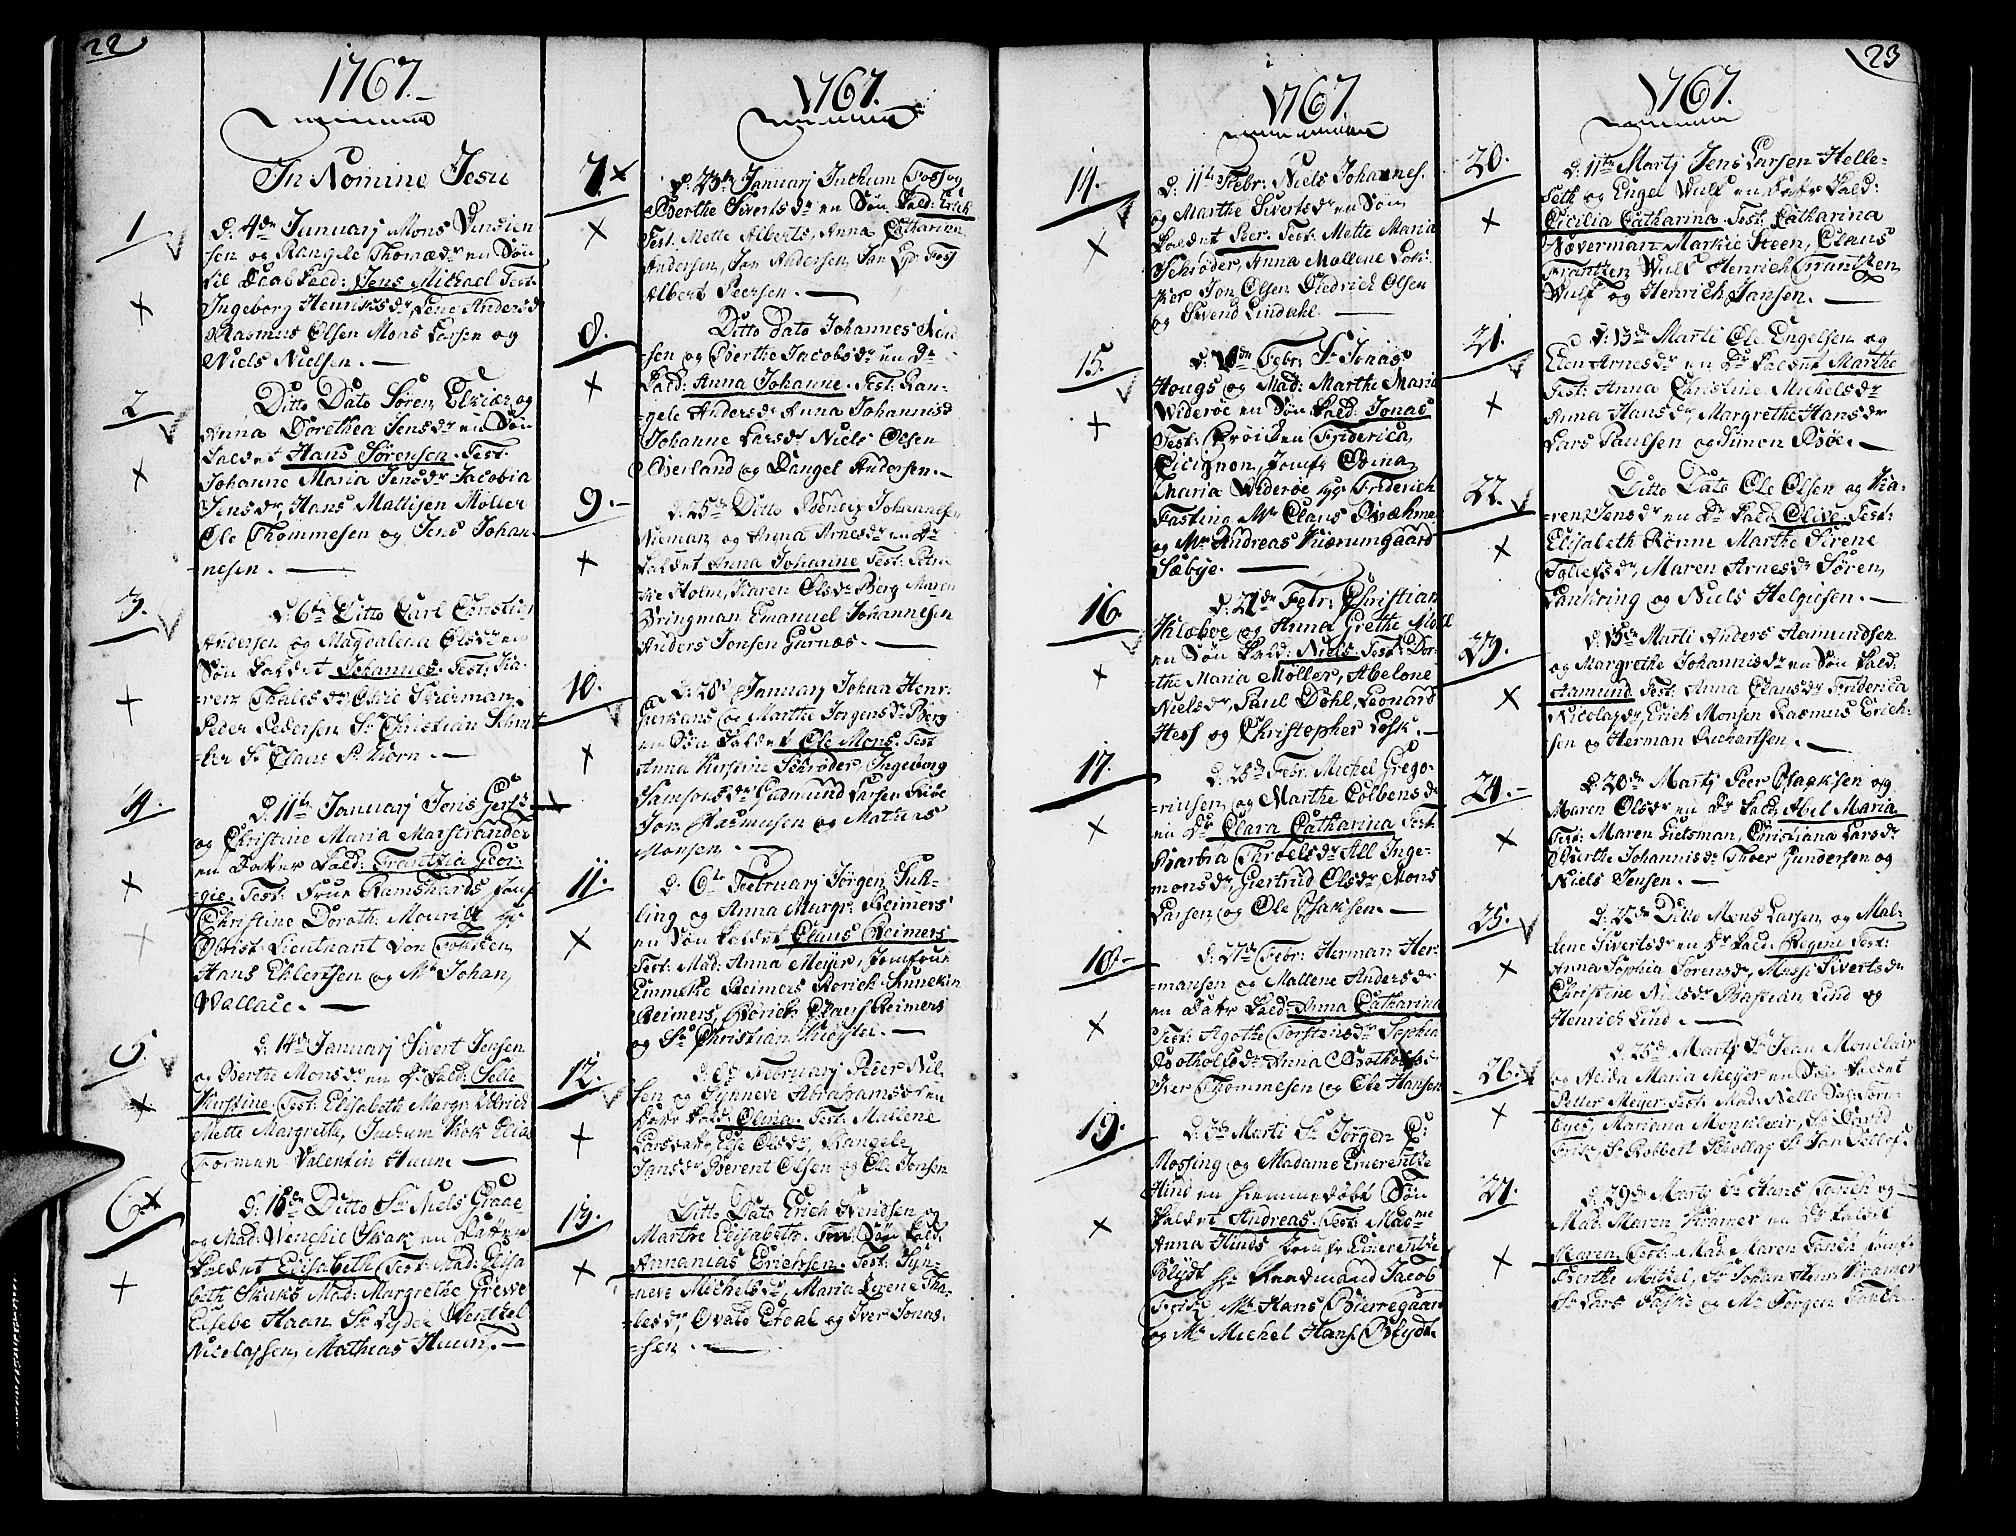 22
1767.
In Nomine Jesu
1
d: 4de Januarj Mons Vindien
sen og Rangele Thomædr en Søn
til Daab kald: Jens Michael Test.
Ingeborg Henriksdr, Lene Andersd
Rasmus Olsen Mons Larsen og
Niels Nielsen.
2
Ditto Dato Søren Elkiær og
Anna Dorethea Jensdr en Søn
kaldet Hans Sørensen. Test.
Johanne Maria Jensdr Jacobia
Jensdr, Hans Mattisen Møller
Ole Thommesen og Jens Johan-
nesen.
3.
d: 6te Ditto Carl Christian
Andersen og Magdalena Olsdr en
Søn kaldet Johannes. Test: Ka-
ren Thalesdr
Peder Pedersen Sr Christian
ker Sr Claus
4.
d: 11te Januarj Joris
og Christine Maria Marstrander
en Datter kald: Frantzia Geor-
gie. Test: Frue Ramshards Jomf
Christine Doroth: Mouritz hr
Obrist Lieutnant von
Hans Ehlertsen og Mr Johan
Wallace.
5.
d: 14de Januarj Sivert Jensen
og Berthe Monsdr en Dr kald: Selle
Kirstine. Test: Elisabeth Margr: Ulrich
Mette Margrethe, Gudrum Krak Elias
Forman Valentin Huun
6
d: 16de Ditto Sr Niels Graae
og Mad: Wenchie Krak en Datter
kaldet Elisabeth Test: Mad: Elisa
beth Kraks Mad: Margrethe Greve
Elsebe Haan Sr Lyder Wentzel
Nicolaysen Mathias Huun.
1767.
7.
d: 23de Januarj Juchum Foss og
Berthe Sivertsdr en Søn kald: Erich
Test. Mette Alberts, Anna Catharina
Andersen, Jan Andersen, Jan Foss
Albert Peersen.
8.
Ditto Dato Johannes
sen og Berthe Jacobsdr en Dr
kald: Anna Johanne. Test: Ran-
gele Andersdr Anna Johannisd
Johanne Larsdr Niels Olsen
Øverland og Dangel Andersen.
9.
d: 25de Ditto Johannes
Nieman og Anna Arnesdr en Dr
kaldet Anna Johanne Test: Petri-
ke Holm, Karen Olsdr Berg Maren
Bringman Emanuel Johannesen
Anders Jonsen Gurnæs.
10.
d: 28de Januarj Johan Henr:
Hermans og Marthe Jørgensdr Berg
en Søn kaldet Ole Mons. Test
Anna Kirstine Schrøder, Ingeborg
Samsonsdr Gudmund Larsen
Jon Rasmusen og Mathias
Monsen.
11.
d: 6te Februarj Jørgen Suk-
ling og Anna Margr: Reimers
en Søn kaldet Claus Reimers
Test: Mad: Anna Meyer, Jomfrue
Emmeke Reimers Rorich. Annekin
Reimers, Rorich Claus Reimers
og Sr Christian Krøstel.
12.
d: 8de Februarj Peder Nil-
sen og Synneve Abrahamsdr en
Datr kald: Olina. Test: Mallene
Larsdatr, Eye Olsdr, Rangele
Jansdr Berent Olsen og Ole Jonsen
13.
Ditto Dato Erich Svendsen og
Marthe Elisabeth. en Søn kald.
Annanias Erichsen. Test: Syn-
neve Michelsdr, Maria Legene Tha-
lesdr, Ovald Erdal og Iver Jonas-
sen.
1767.
14.
d: 11te Febr: Niels Johannes.
og Marthe Sivertsdr en Søn
kaldet Peer. Test: Mette Maria
Schrøder, Anna Mallene Lok-
ker Jon Olsen Diedrich Olsen
og Svend Lindahl.
15.
d: 18de Febr: Sr Jonas
Hougs og Mad: Marthe Maria
Widerøe en Søn kald: Jonas
Test: Frøiken Friderica
Cicignon, Jomfr Stina
Maria Widerøe hr Friderich
Fasting Mr Claus
og Mr Andreas Kierumgaard
Sæbye.
16.
d: 21de Febr: Christian
Kløboe og Anna Grethe
en Søn kald: Niels Test: Dor-
the Maria Møller, Abelone
Nielsdr, Paul Dahl, Leonard
Hess og Christopher Losk.
17.
d: 25de Febr: Michel Grego-
riusen og Marthe Colbensdr
en Dr Clara Catharina Test.
Barbra Throelsdr All Inge-
monsdr, Giertrud Olsdr, Mons
Larsen og Ole Isaksen.
18.
d: 27de Febr: Herman Her-
mansen og Mallene Andersdr
en Datr kald: Anna Catharina
Test: Agathe Torstensdr Sophia
Botholfsdr Anna Botholfsdr
Iver Thommesen og Ole Hansen
19.
d: 3de Marti Sr Jørgen P:
Mossing og Madame Emerentze
Hind en hiemmedøbt Søn
kaldet Andreas. Test: Madme
Anna Hinds Jomfr Emerentze
Blydt hr Raadmand Jacob
Frik, Mr Hans Bierregaard
og Mr Michel Hans. Blydt.
23
1767.
20.
d: 11te Martj Jens Larsen Helle-
seth og Engel Wulf en Datr kald:
Cicilia Catharina. Test. Catharina
Næverman Markie Steen, Claus
Frantzen Wulf Henrich Frantzen
Wulf og Henrich Jansen.
21.
d: 13de Marti Ole Engelsen og
Elen Arnesdr en Dr kaldet Marthe
Test: Anna Christine Michelsdr
Anna Hansdr, Margrethe Hansdr
Lars Paulsen og Simon Bøe.
22.
Ditto Dato Ole Olsen og Ka-
ren Jensdr en Dr kald: Olive. Test:
Elisabeth Rønne Marthe Sirene
Tollefsdr, Maren Arnesdr Søren
Lankring og Niels Helgiesen.
23.
d: 15de Marti Anders Aamundsen
og Margrethe Johannisdr en Søn kald:
Aamund Test: Anna Clausdr Friderica
Nicolaysdr, Erich Monsen Rasmus Erich-
sen og Herman Richartsen.
24.
d: 20de Martj Peer Isaaksen og
Maren Olsdr en Dr kald, Abel Maria
Test: Maren Gietsman, Christiana Larsdr
Berthe Johannisdr Thoer Gundersen og
Niels Jensen.
25.
d: 22de Ditto Mons Larsen og Mal-
lene Sivertsdr en Dr kald: Regene Test:
Anna Sophia Sørensdr, Massi Sivertsdr
Christine Nielsdr Bastian Lind og
Henrich Lind.
26.
d: 25de Martj Sr Jean Monclair
og Aleida Maria Meyer en Søn kaldet
Petter Meyer Test: Mad: Nelle Sal: Tor-
Mariana Monclair, Sr David
Frik, Sr Robbert Schollay Sr Jan Tellefs.
27.
d: 29de Martj Sr Hans Fasch og
Mad: Maren Kramer en Dr kaldet
Maren. Test: Mad: Maren Fasch Jomfr
Berthe Mitzel, Sr Johan Kramer
Sr Lars Faske og Mr Jørgen Fasch.